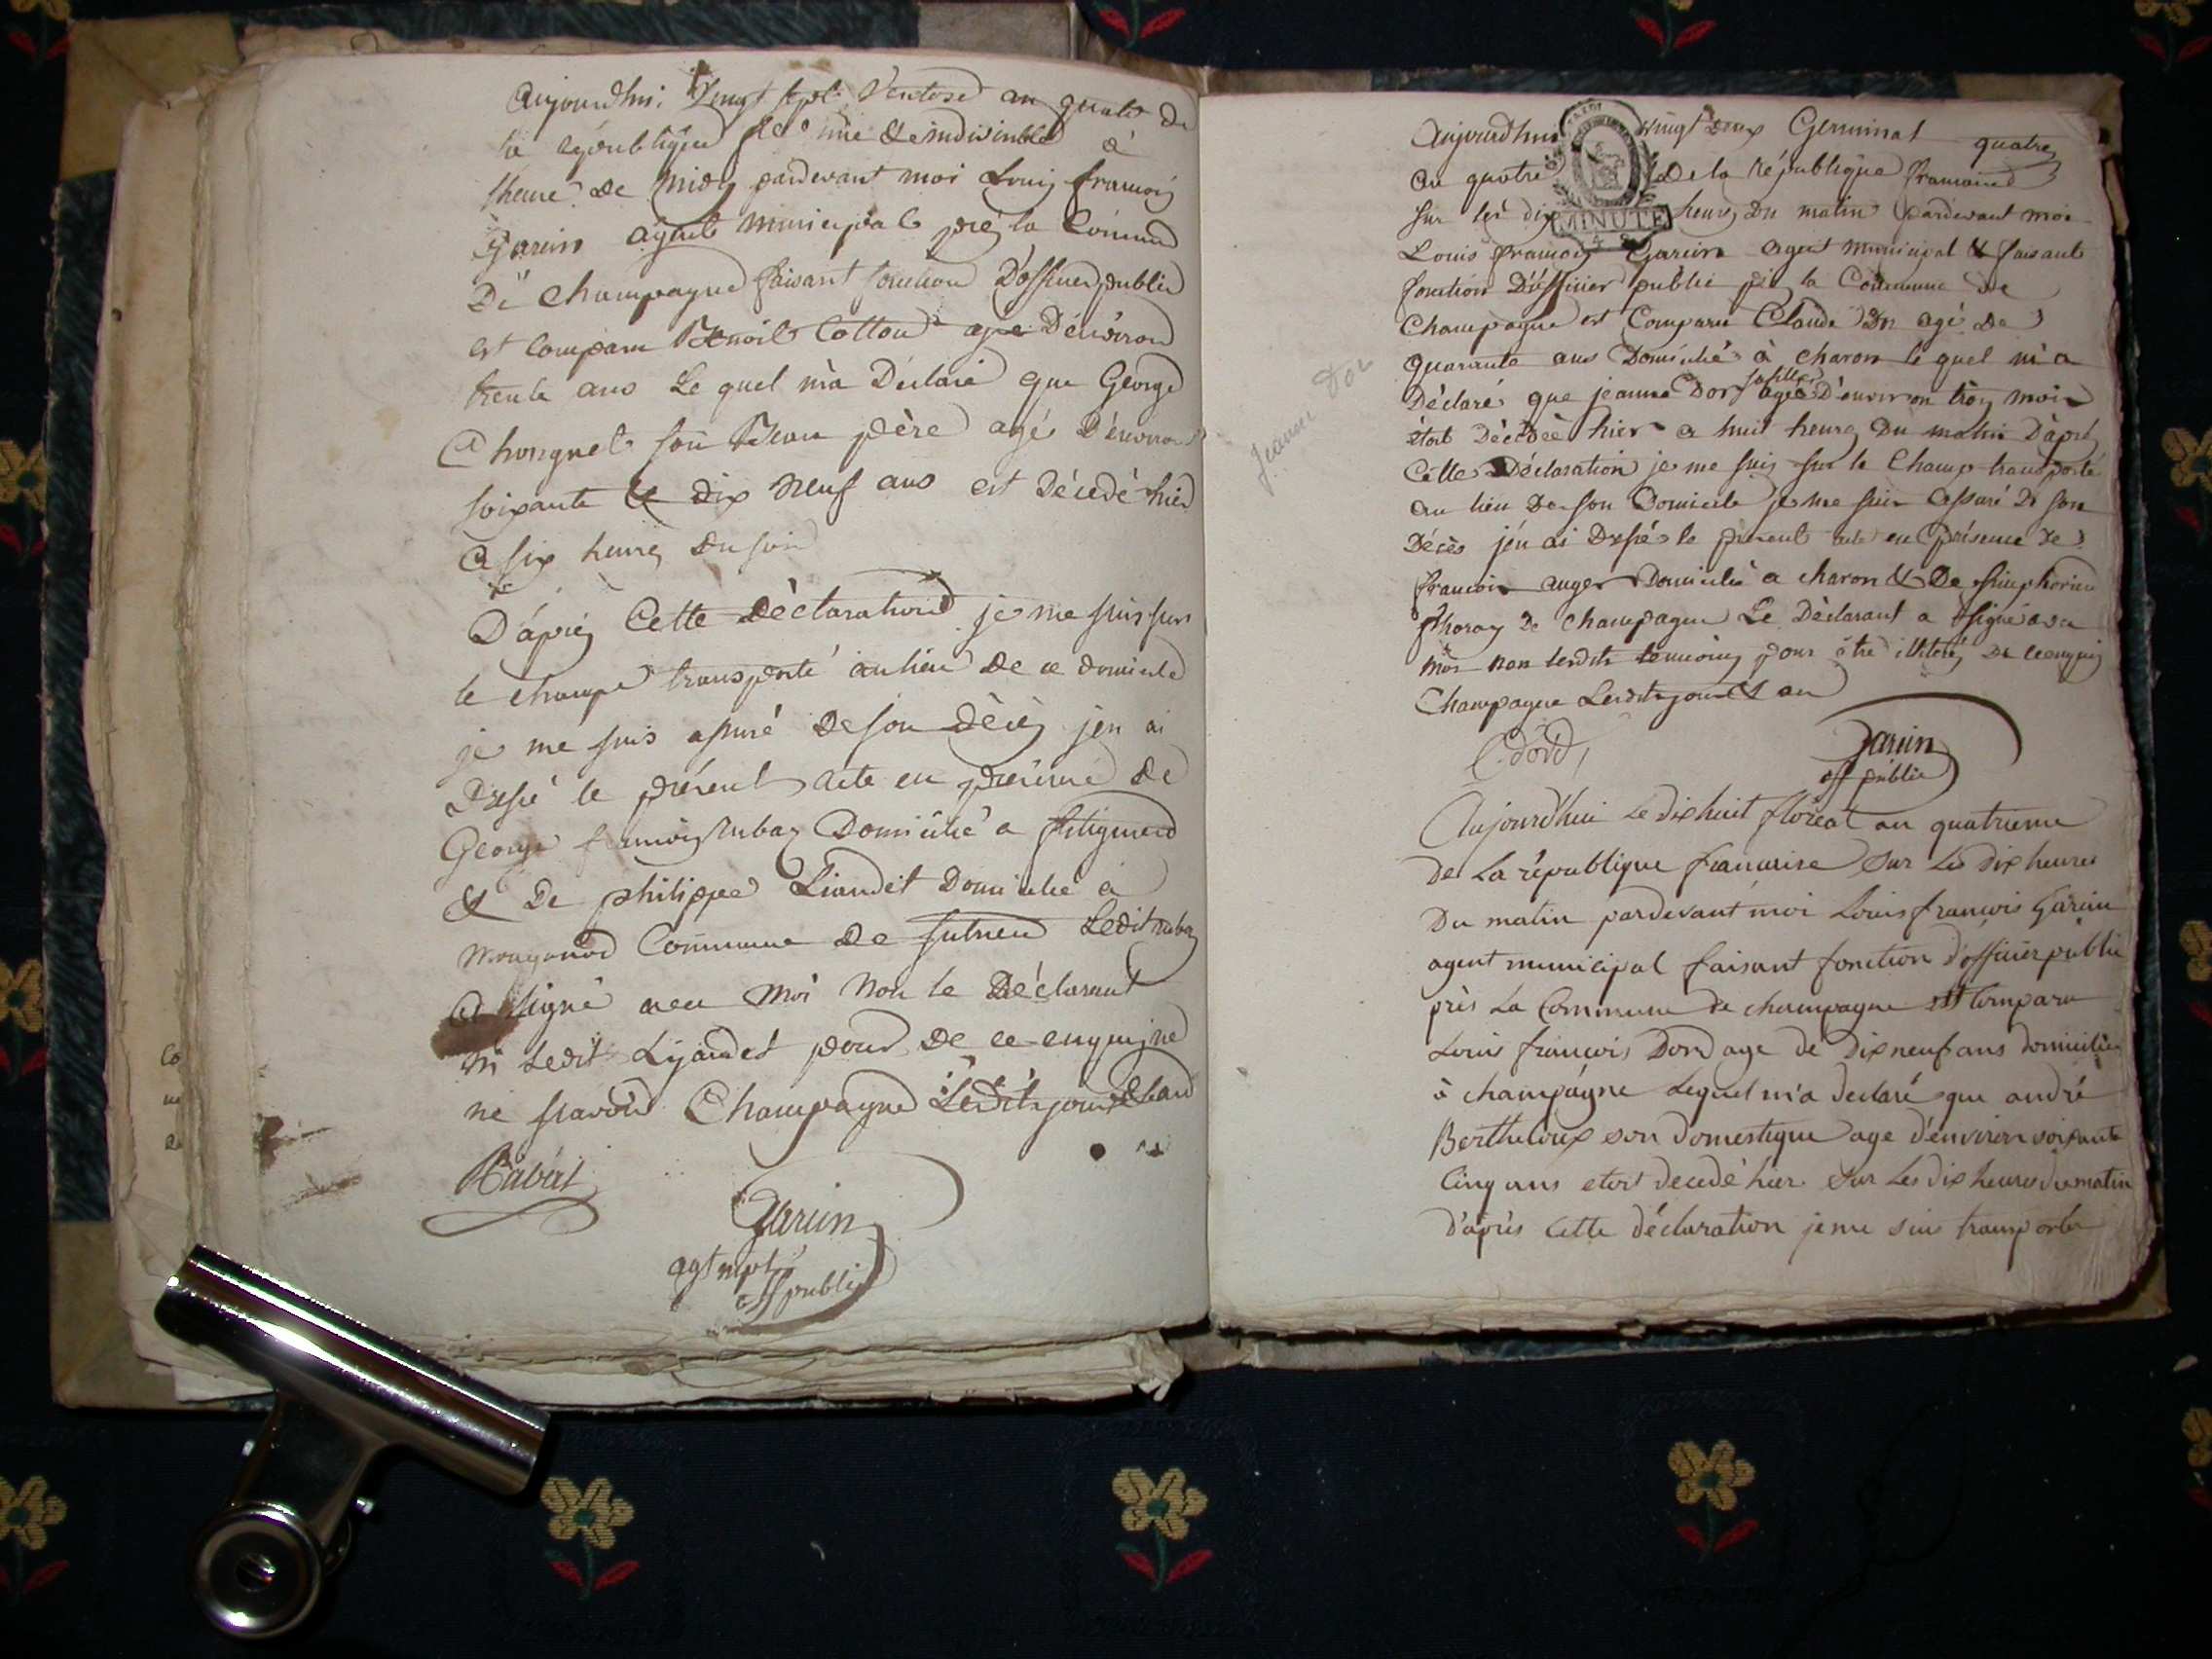 Aujourdhui Vingt sept Ventose an quatre de
la république française une & indivisible à
l'heure de midy pardevant moi Louis françois
Garin agent municipal près la Commune
De Champagne faisant fonction D'officier public
est comparu Benoit Cottou agé D'environ
trente ans Le quel m'a Déclaré que George
Chongnet son Beau père agé D'environ
soixante & dix neuf ans est Décedé hier
a six heures du soir
D'après Cette Déclaration je me suis sur
le champ transporté au lieu De ce domicile
je me suis assuré De son Décès j'en ai
Dressé le présent acte en présence De
George françois Domicilié a
& De philippe Liandet Domicilié à
Commune De Sutrieu Ledit
a signé avec Moi Non le Déclarant
ni Ledit Lyandet pour De ce enquis ne
ne sçavoir Champagne Lesdits jour & an
Rabut
Garin
agt mpl
off public
Jeanne Dor
Aujourdhui vingt deux Germinal quatre
an quatre De la République francaise
MINUTE
sur les dix heures Du matin pardevant moi
Louis françois Garin agent municipal & faisant
fonction D'officier public près la Commune de
Champagne est Comparu Claude Dor agé De
quarante ans Domicilié à charon le quel m'a
Déclaré que jeanne Dor sa fille agée D'environ trois mois
étoit Décédée hier a huit heures Du matin D'après
Cette Déclaration je me suis sur le Champ transporté
au lieu De son Domicile je me suis assuré De son
Décès j'en ai Dressé le présent acte en présence De
francois auger Domicilié a charon & De simphorien
De Champagne Le Déclarant a signé avec
moi non lesdits temoins pour être illiterés De ce enquis
Champagne Lesdits jour & an
C dord
Garin
off public
Aujourd'hui Le dix huit floreal an quatrieme
De La république francaise sur Les dix heures
Du matin pardevant moi Louis françois Garin
agent municipal faisant fonction d'officier public
près La Commune de champagne est comparu
Louis francois Dord age de Dix neuf ans domicilié
à champagne Lequel m'a declaré que andré
Bertheloux son domestique age d'environ soixante
Cinq ans etoit decedé hier sur Les dix heures du matin
d'après cette déclaration je me suis transporté